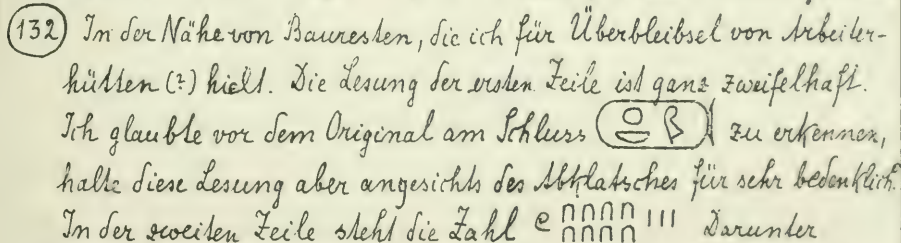 (132) In der Nähe von Bauresten, die ich für Überbleibsel von Arbeiter-
hütten (?) hielt. Die Lesung der ersten Zeile ist ganz zweifelhaft.
Ich glaubte vor dem Original am Schluss zu erkennen,
halte diese Lesung aber angesichts des Abklatsches für sehr bedenklich.
In der zweiten Zeile steht die Zahl 𓍢 𓎆𓎆𓎆𓎆𓎆𓎆𓎆𓎆 𓏤𓏤𓏤 Darunter